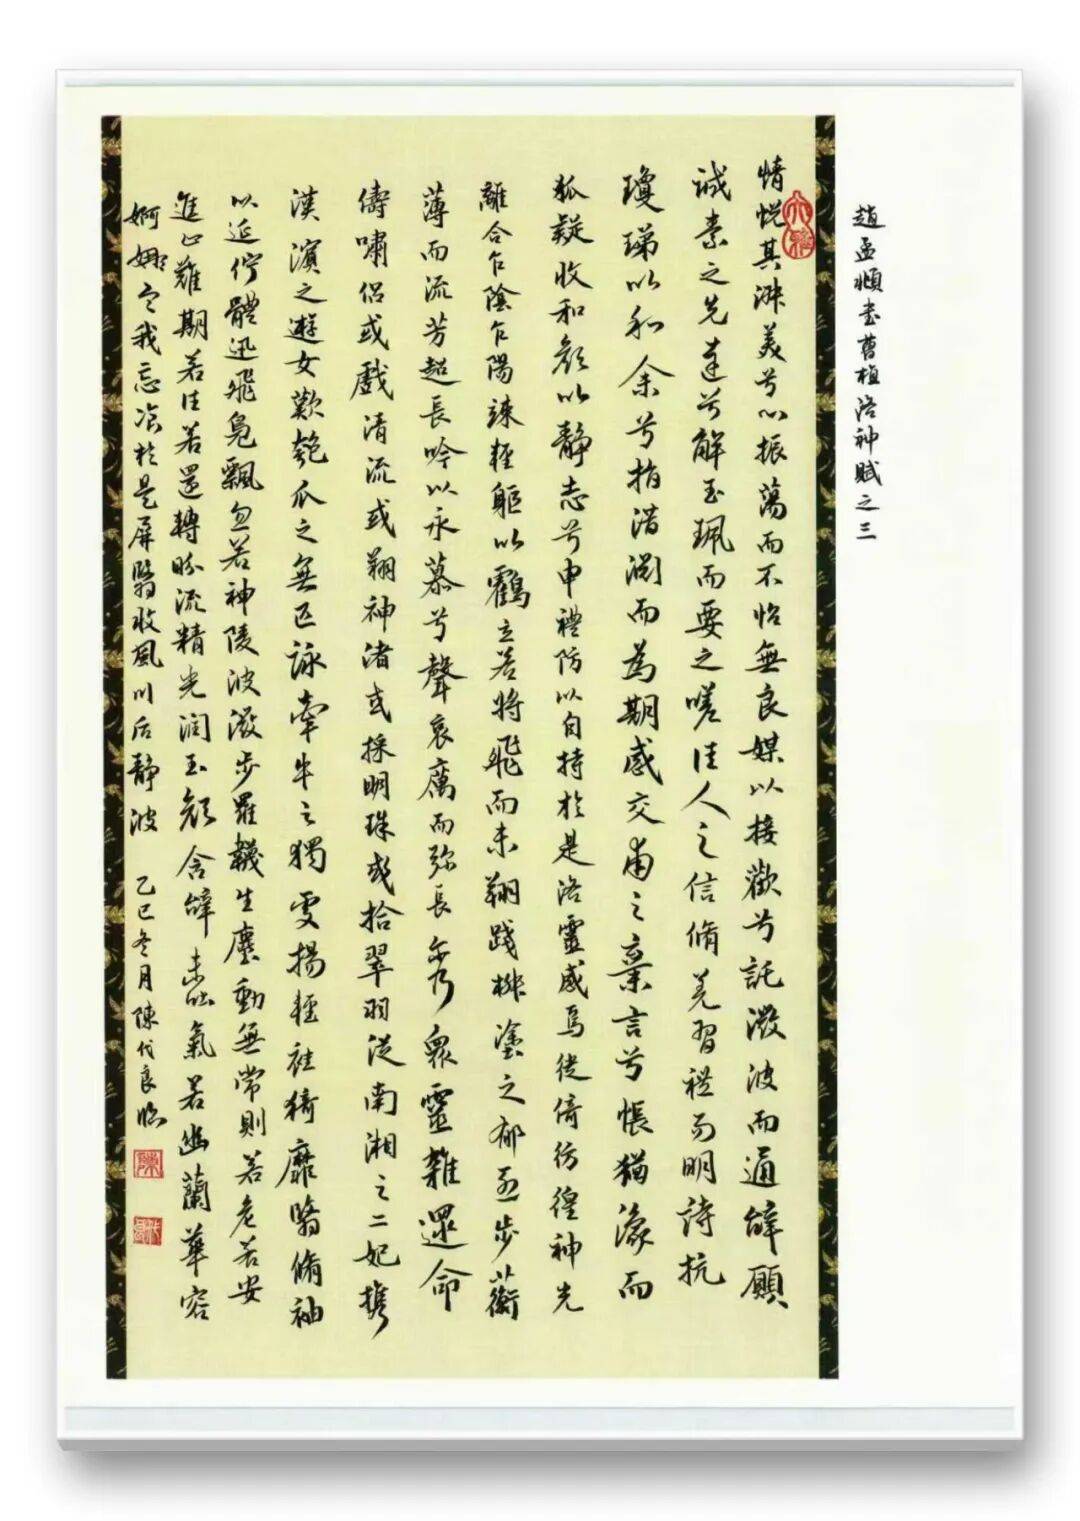 趙孟頫書曹植洛神賦之三
情悦其淑美兮心振蕩而不怡無良媒以接歡兮託微波而通辝願
誠素之先達兮解玉珮而要之嗟佳人之信脩羌習禮而明詩抗
瓊珶以和余兮指潛淵而為期感交甫之棄言兮悵猶豫而
狐疑收和顔以静志兮申禮防以自持於是洛靈感焉徙倚彷徨神光
離合乍陰乍陽竦輕軀以鶴立若將飛而未翔踐椒塗之郁烈步蘅
薄而流芳超長吟以永慕兮聲哀厲而弥長尔乃衆靈雜遝命
儔嘯侣或戲清流或翔神渚或採明珠或拾翠羽從南湘之二妃攜
漢濱之遊女歎匏瓜之無匹詠牽牛之獨處揚輕袿猗靡翳脩袖
以延佇體迅飛鳧飄忽若神陵波微步羅韈生塵動無常則若危若安
進止難期若往若還轉眄流精光潤玉顔含辝未吐氣若幽蘭華容
婀娜令我忘飡於是屏翳收風川后静波 乙巳冬月陳代良臨
大雅
陳